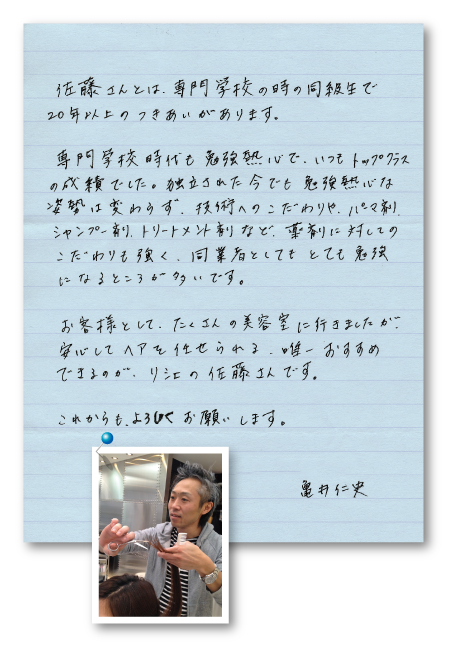 佐藤さんとは、専門学校の時の同級生で
20年以上のつきあいがあります。
専門学校時代も勉強熱心で、いつもトップクラス
の成績でした。独立された今でも勉強熱心な
姿勢は変わらず、技術へのこだわりや、パーマ剤、
シャンプー剤、トリートメント剤など、薬剤に対しての
こだわりも強く、同業者としてもとても勉強
になるところが多いです。
お客様として、たくさんの美容室に行きましたが、
安心してヘアを任せられる、唯一おすすめ
できるのが、リシェの佐藤さんです。
これからも、よろしくお願いします。
亀井仁史